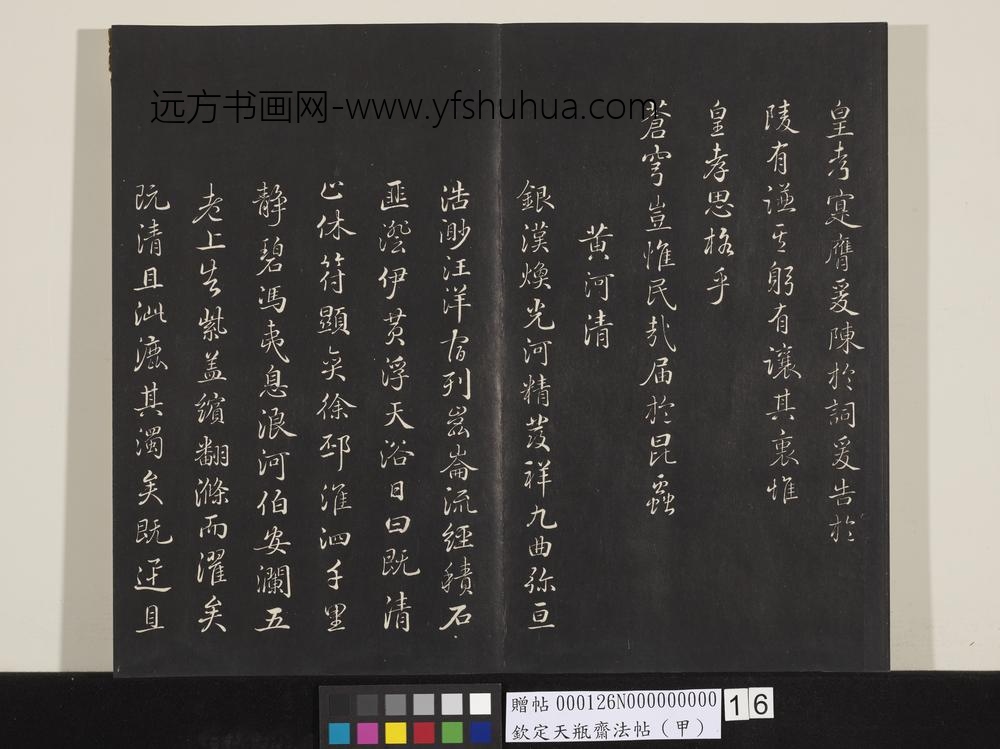 远方书画网-www.yfshuhua.com
皇考寔膺爰陳於詞爰告於
陵有謙其躬有讓其衷惟
皇孝思格乎
蒼穹豈惟民哉届於昆蟲
黄河清
銀漢煥光河精發祥九曲弥亘
浩渺汪洋宿列崑崙流經積石
匪瀅伊黄浮天浴日曰既清
止休符顯奕徐邳淮泗千里
静碧馮夷息浪河伯安瀾五
老上告紫盖繽翻滌而濯矣
既清且泚漉其濁矣既涏且
贈帖 000126N000000000
欽定天瓶齋法帖（甲）
16